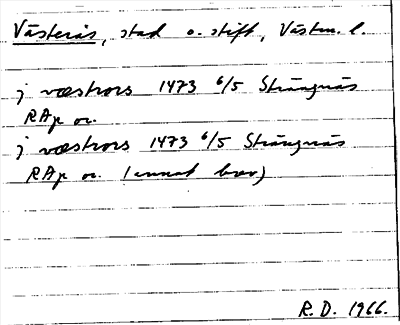 Västerås, stad o. stift, Västm. l.
j væstrors 1473 6/5 Strängnäs
RAp or.
j væstrors 1473 6/5 Strängnäs
RAp or. (annat brev)
R.D. 1966.